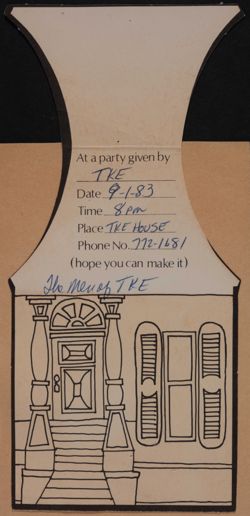 At a party given by
TKE
Date 9-1-83
Time 8pm
Place TKE HOUSE
Phone No. 772-1681
(hope you can make it)
The Men of TKE